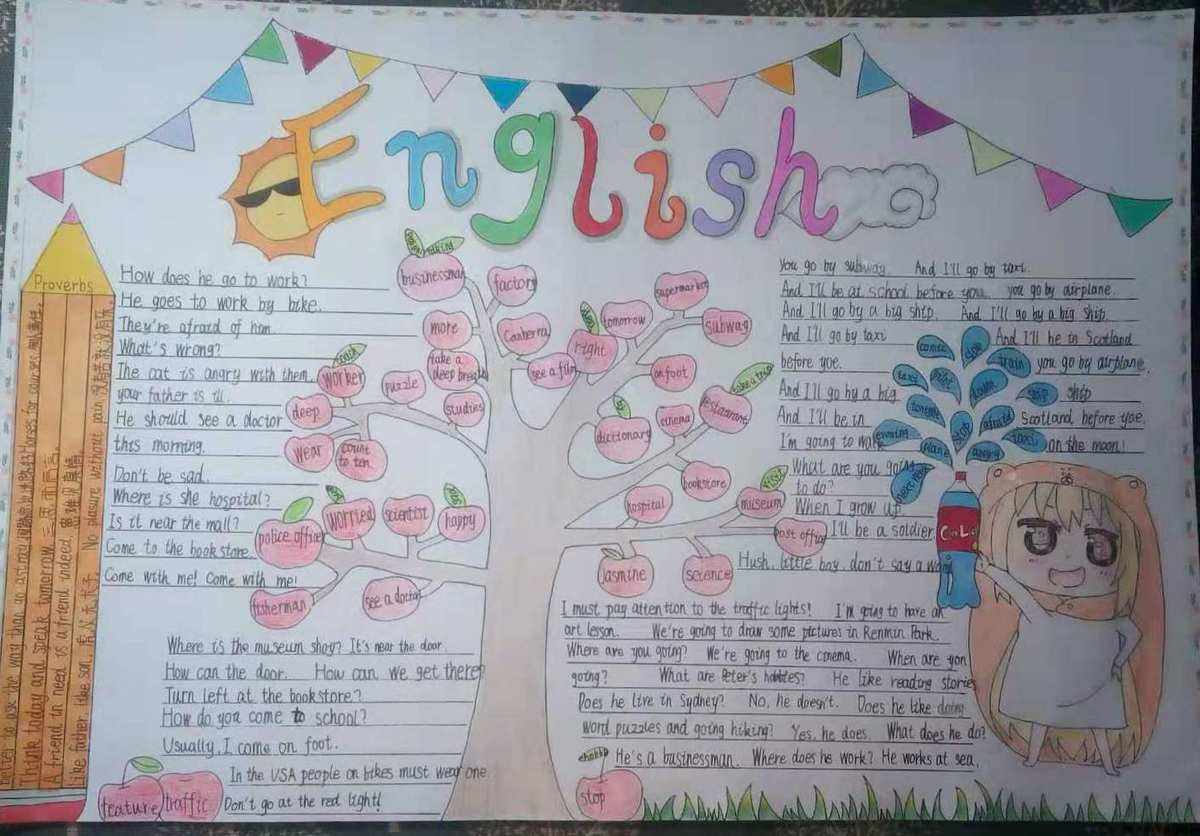 English
Proverbs
better to ask the way than go astray.
Think today and speak tomorrow. 三思而后言
A friend in need is a friend indeed.
like father like son. 虎父无犬子
No pleasure without pain.
How does he go to work?
He goes to work by bike.
They're afraid of him.
What's wrong?
The cat is angry with them.
your father is ill.
He should see a doctor
this morning.
Don't be sad.
Where is she hospital?
Is it near the mall?
Come to the bookstore.
Come with me! Come with me!
businessman
factory
more
Canberra
take a
deep breath
see a film
right
tomorrow
supermarket
subway
on foot
worker
puzzle
studies
deep
wear
count
to ten
dictionary
cinema
restaurant
take a trip
bookstore
hospital
museum
post office
police office
worried
scientist
happy
fisherman
see a doctor
Jasmine
science
You go by subway. And I'll go by taxi.
And I'll be at school before you. you go by airplane.
And I'll go by a big ship. And I'll go by a big ship.
And I'll go by taxi And I'll he in Scotland
before yoe. you go by airplane.
And I'll go by a big ship
And I'll be in Scotland before yoe.
I'm going to make on the moon!
What are you going
to do?
When I grow up
I'll be a soldier
Hush, little bay, don't say a word
comic
stop
train
taxi
ship
evening
plane
stop
afraid
angry
I must pay attention to the traffic lights! I'm going to have an
art lesson. We're going to draw some pictures in Renmin Park.
Where are you going? We're going to the cinema. When are yon
going? What are Peter's hobbies? He like reading stories
Does he live in Sydney? No, he doesn't. Does he like doing
word puzzles and going hiking? Yes, he does. What does he do?
He's a businessman. Where does he work? He works at sea.
stop
Where is the museum shoy? It's near the door.
How can the door. How can we get there?
Turn left at the bookstore?
How do you come to school?
Usually, I come on foot.
In the USA people on bikes must wear one
Don't go at the red light!
feature
traffic